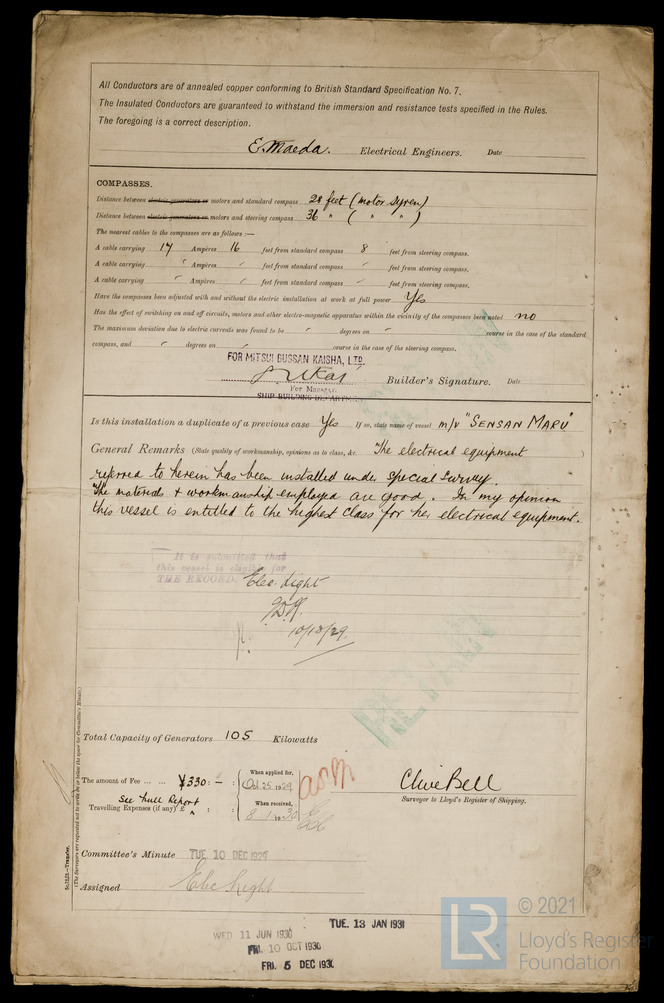 All Conductors are of annealed copper conforming to British Standard Specification No. 7.
The Insulated Conductors are guaranteed to withstand the immersion and resistance tests specified in the Rules.
The foregoing is a correct description.
E. Maeda. Electrical Engineers. Date
COMPASSES.
Distance between electric generators or motors and standard compass 28 feet (motor syren)
Distance between electric generators or motors and steering compass 36 " ( " " )
The nearest cables to the compasses are as follows:—
A cable carrying 17 Ampères 16 feet from standard compass 8 feet from steering compass.
A cable carrying " Ampères " feet from standard compass " feet from steering compass.
A cable carrying " Ampères " feet from standard compass " feet from steering compass.
Have the compasses been adjusted with and without the electric installation at work at full power Yes
Has the effect of switching on and off circuits, motors and other electro-magnetic apparatus within the vicinity of the compasses been noted no
The maximum deviation due to electric currents was found to be " degrees on " course in the case of the standard
compass, and " degrees on " course in the case of the steering compass.
FOR MITSUI BUSSAN KAISHA, LTD.
Builder's Signature. Date
For Manager,
SHIP BUILDING DEPARTMENT
Is this installation a duplicate of a previous case Yes If so, state name of vessel m/v "SENSAN MARU"
General Remarks (State quality of workmanship, opinions as to class, &c. The electrical equipment )
referred to herein has been installed under special survey.
The materials & workmanship employed are good. In my opinion
this vessel is entitled to the highest class for her electrical equipment.
It is submitted that
this vessel is eligible for
THE RECORD. Elec. Light
10/12/29.
Total Capacity of Generators 105 Kilowatts
The amount of Fee ... ... ¥330 : — :
When applied for,
Oct. 25 1929
See Hull Report
Travelling Expenses (if any) £ : :
When received,
8 1 1930
Clive Bell
Surveyor to Lloyd's Register of Shipping.
Committee's Minute TUE 10 DEC 1929
Assigned Elec Light
(The Surveyors are requested not to write on or below the space for Committee's Minute.)
TUE. 13 JAN 1931
WED 11 JUN 1930
FRI. 10 OCT 1930
FRI. 5 DEC 1930
LR
© 2021
Lloyd's Register
Foundation